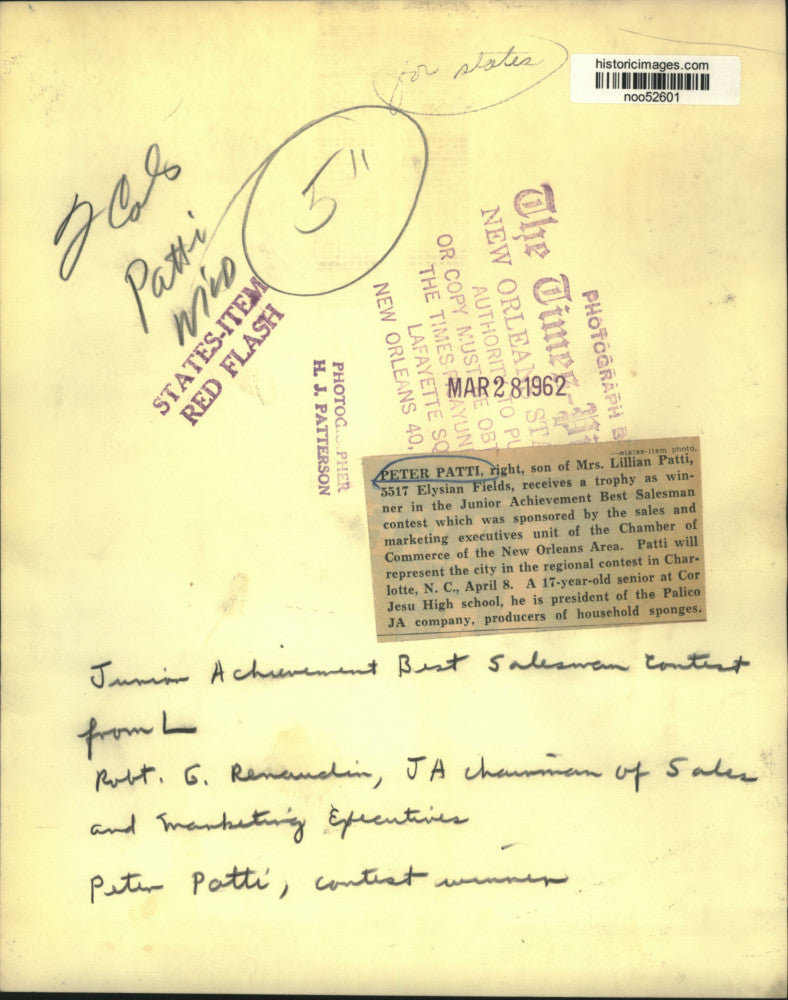 for states
historicimages.com
noo52601
2 Cols
5"
Patti
STATES-ITEM
RED FLASH
PHOTOGRAPH B
The Times-Pi
NEW ORLEANS STA
AUTHORITY TO PU
OR COPY MUST BE OBT
THE TIMES-PICAYUN
LAFAYETTE SQ
NEW ORLEANS 40,
MAR 28 1962
PHOTOG PHER
H. J. PATTERSON
—States-Item photo.
PETER PATTI, right, son of Mrs. Lillian Patti,
5517 Elysian Fields, receives a trophy as win-
ner in the Junior Achievement Best Salesman
contest which was sponsored by the sales and
marketing executives unit of the Chamber of
Commerce of the New Orleans Area. Patti will
represent the city in the regional contest in Char-
lotte, N. C., April 8. A 17-year-old senior at Cor
Jesu High school, he is president of the Palico
JA company, producers of household sponges.
Junior Achievement Best Salesman Contest
from L
Robt. G. Renaudin, JA chairman of Sales
and Marketing Executives
Peter Patti, contest winner